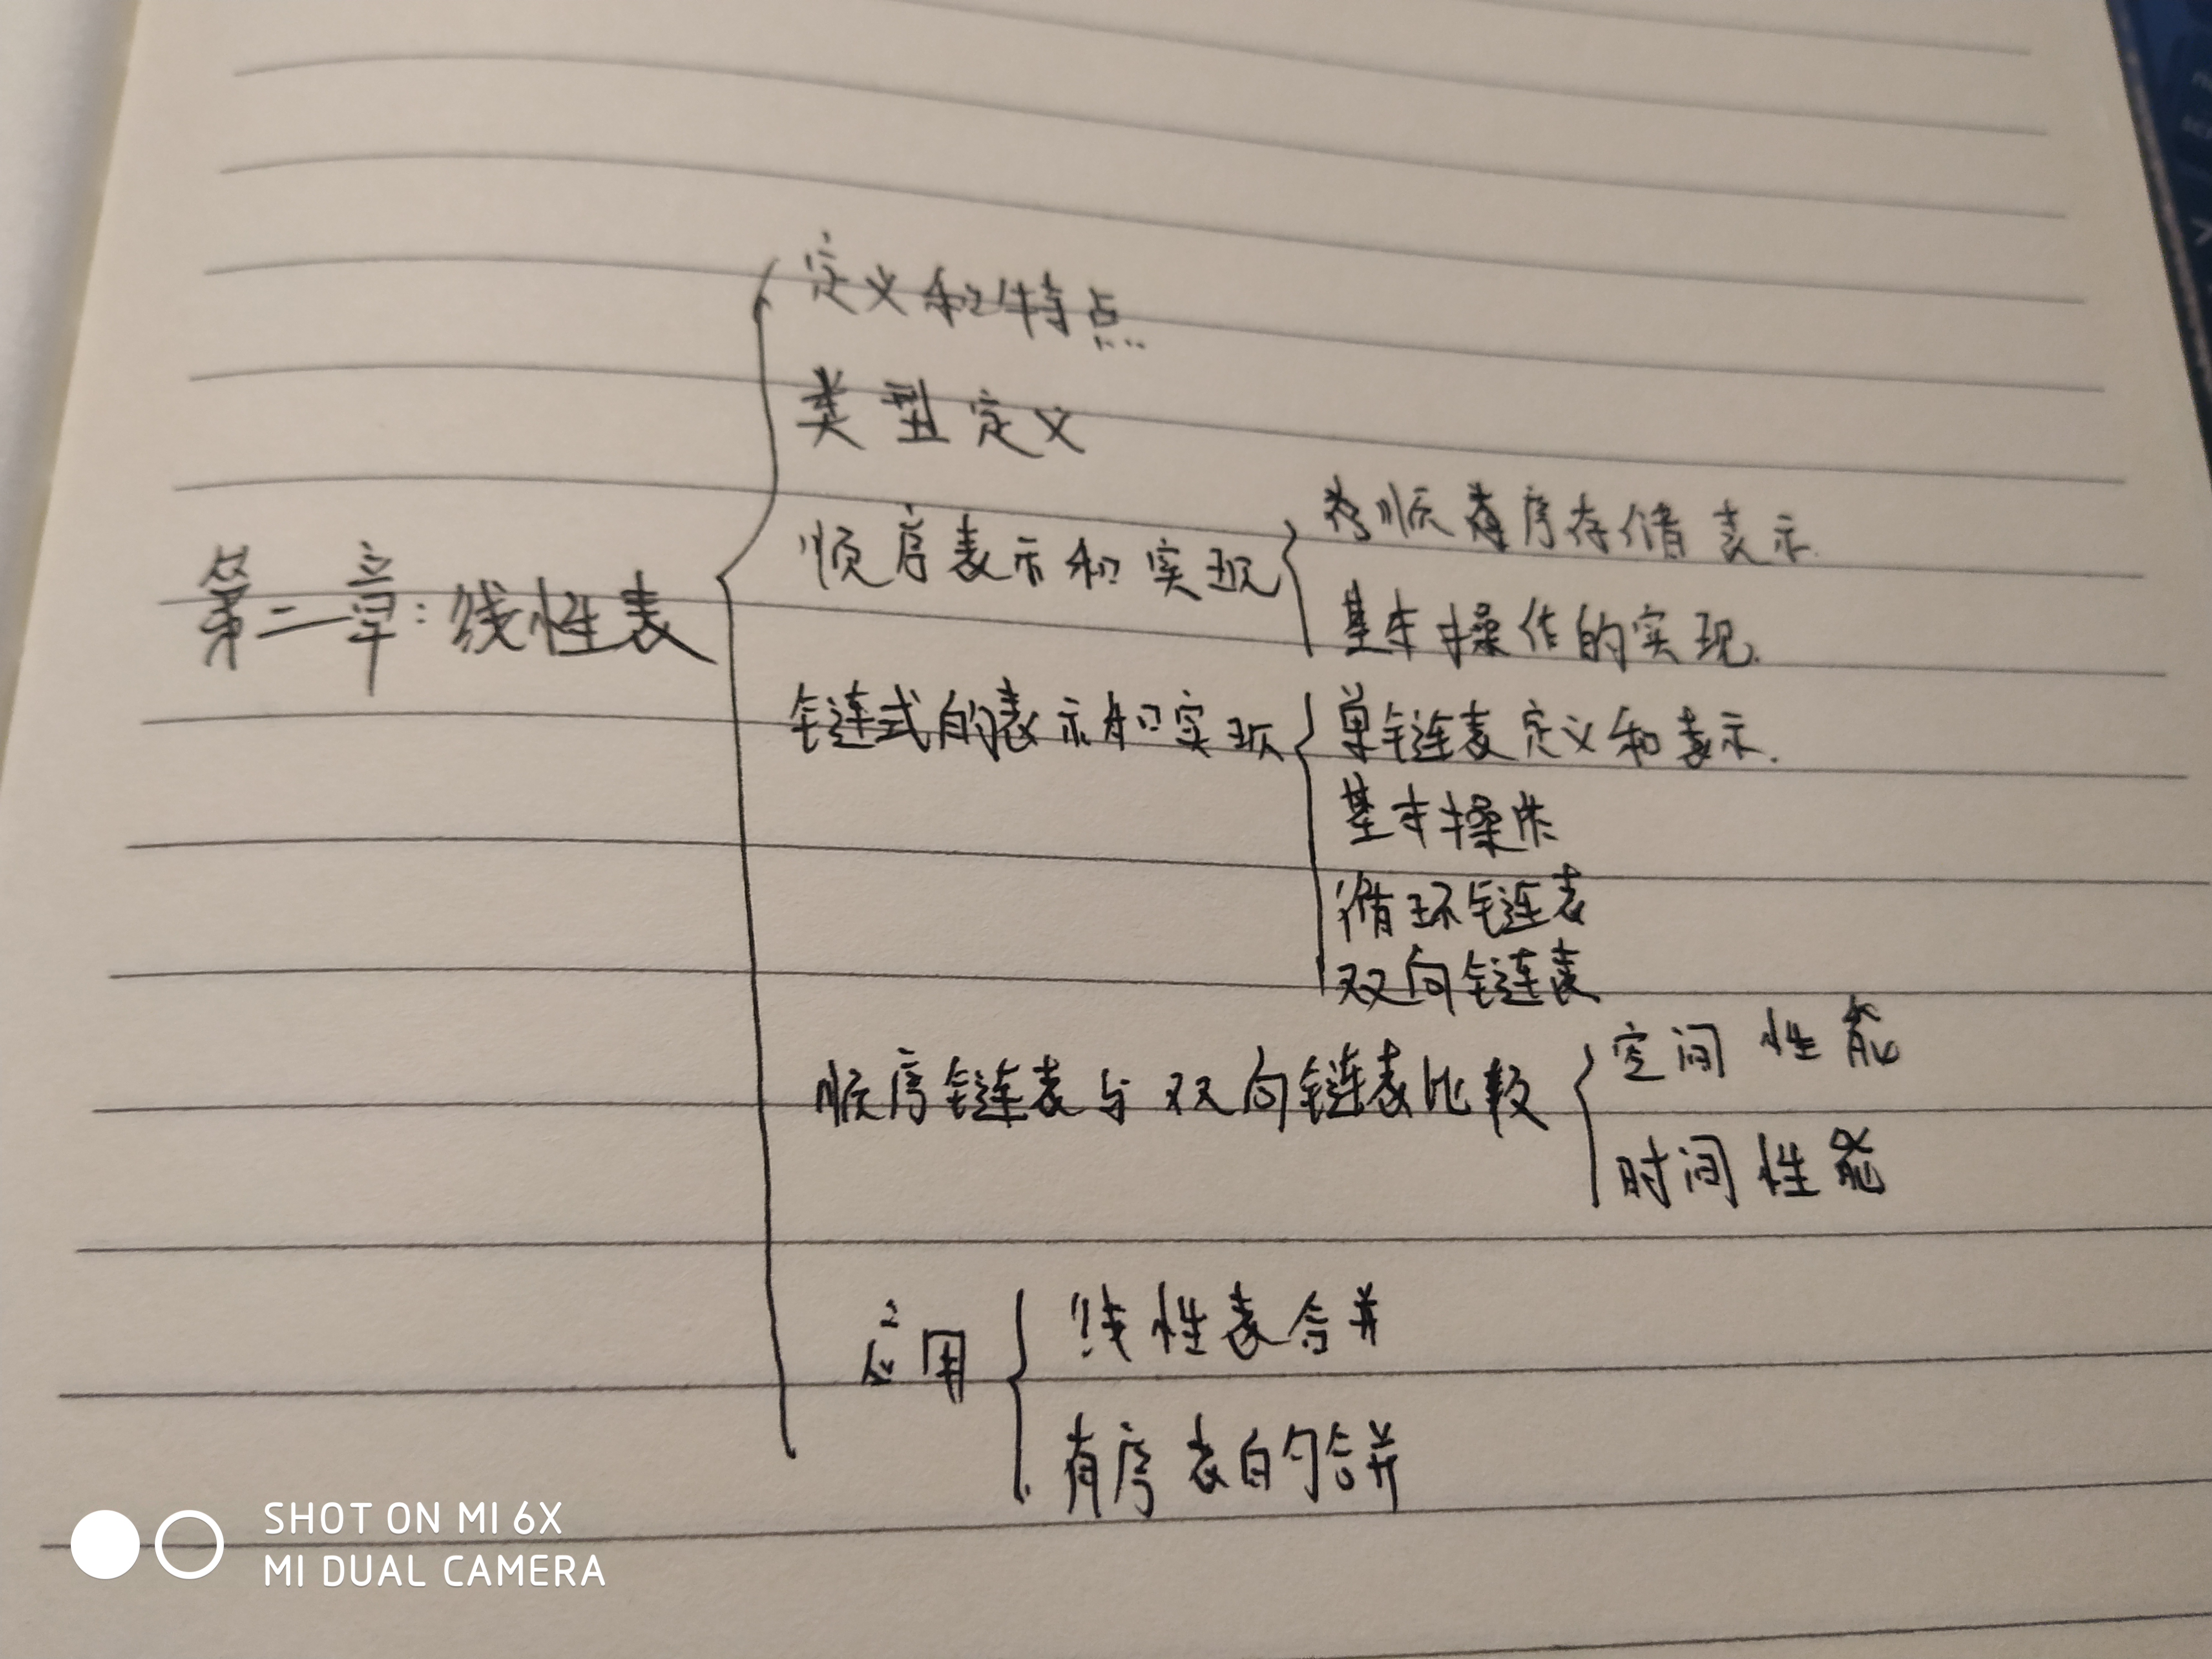 第二章：线性表
定义和特点
类型定义
顺序表示和实现
顺序存储表示
基本操作的实现.
链式的表示和实现
单链表定义和表示.
基本操作
循环链表
双向链表
顺序链表与双向链表比较
空间性能
时间性能
应用
线性表合并
有序表的合并
SHOT ON MI 6X
MI DUAL CAMERA